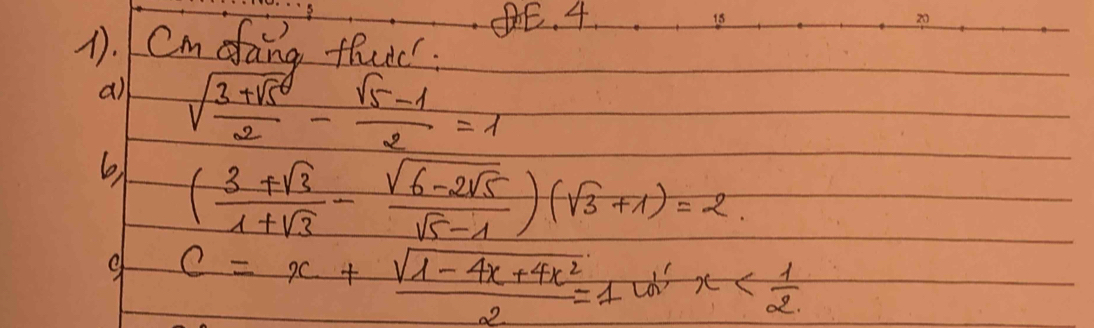 ĐE. 4.
15 20
1). Cm đẳng thức:
a) \sqrt{\frac{3+\sqrt{5}}{2}} - \frac{\sqrt{5}-1}{2} = 1
b, \left(\frac{3+\sqrt{3}}{1+\sqrt{3}} - \frac{\sqrt{6-2\sqrt{5}}}{\sqrt{5}-1}\right)(\sqrt{3}+1) = 2.
c, C = x + \frac{\sqrt{1-4x+4x^2}}{2} = 1 với x < \frac{1}{2}.